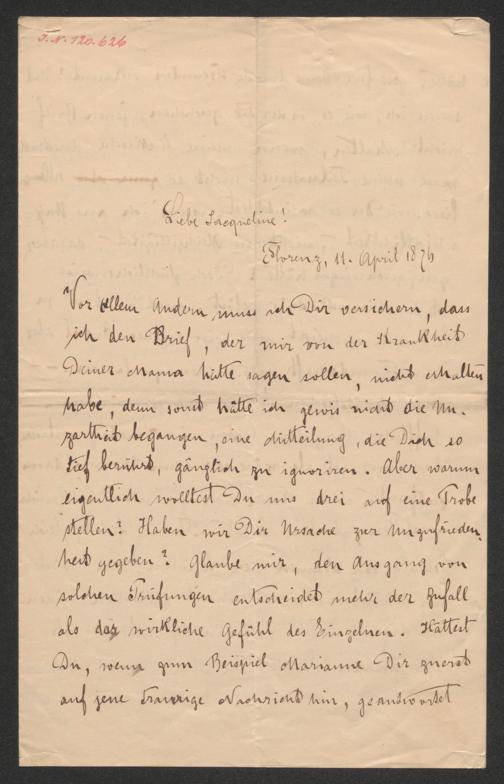 I.N. 120.626
Liebe Jacqueline!
Florenz, 11. April 1876
Vor allem Andern muss ich Dir versichern, dass
ich den Brief, der mir von der Krankheit
Deiner Mama hätte sagen sollen, nicht erhalten
habe, denn sonst hätte ich gewis nicht die Un-
zartheit begangen, eine Mitteilung, die Dich so
tief berührt, gänzlich zu ignoriren. Aber warum
eigentlich wolltest Du uns drei auf eine Probe
stellen? Haben wir Dir Ursache zur Unzufrieden-
heit gegeben? Glaube mir, den Ausgang von
solchen Prüfungen entscheidet mehr der Zufall
als das wirkliche Gefühl des Einzelnen. Hättest
Du, wenn zum Beispiel Marianne Dir zuerst
auf jene traurige Nachricht hin, geantwortet